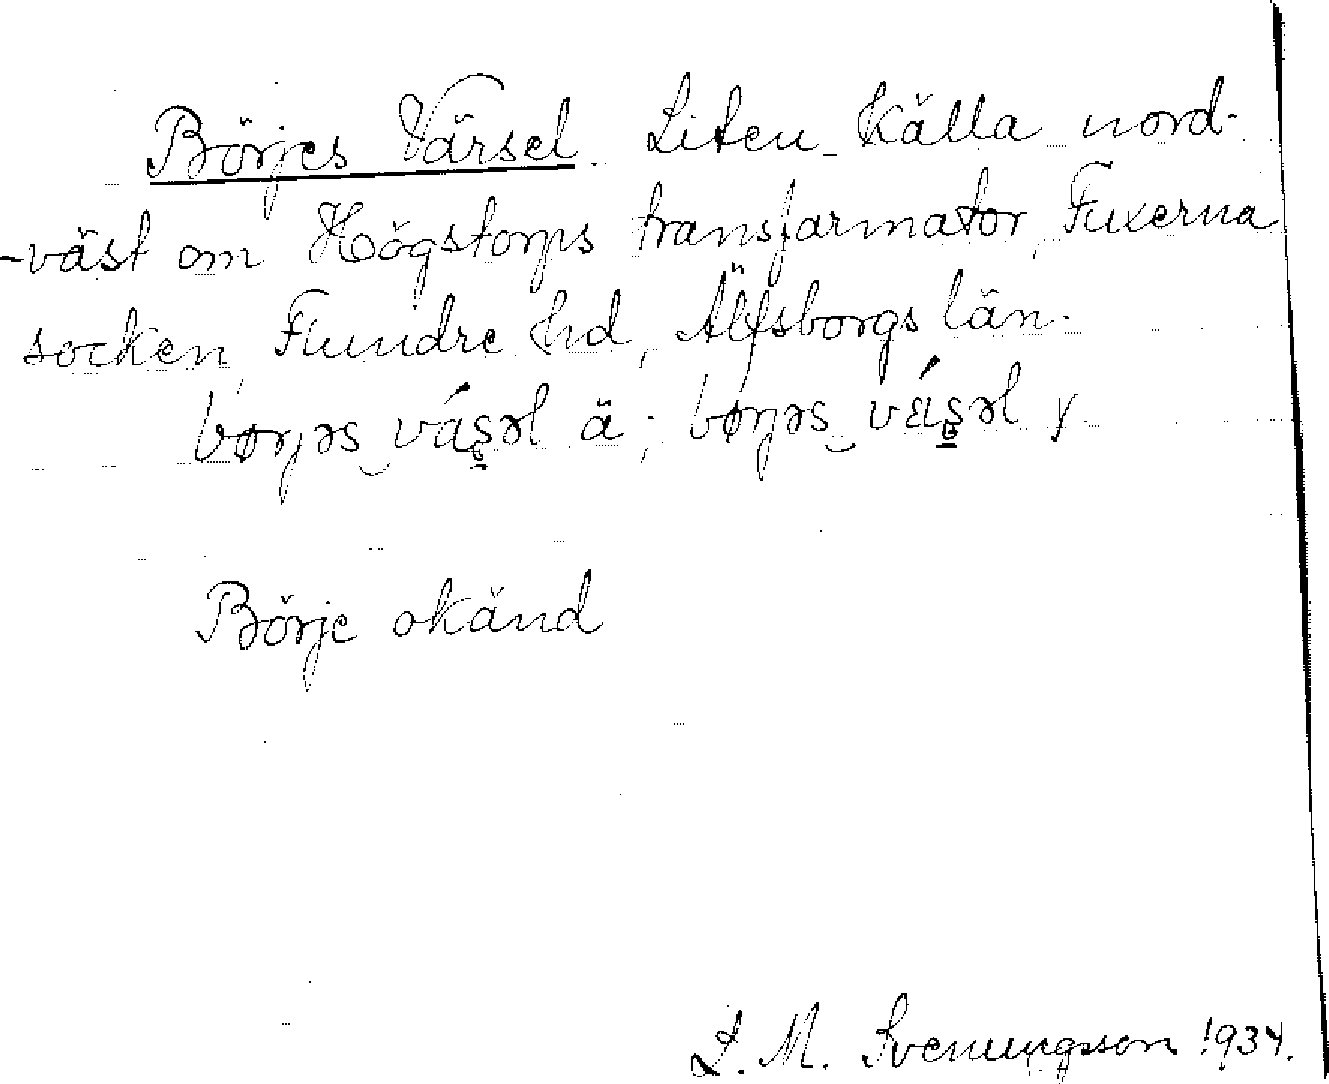 Börjes Värsel. Liten källa nord-
-väst om Högstorps transformator, Fuxerna
socken, Flundre hd, Älfsborgs län.
børjəs vásəl ä; børjəs vásəl y
Börje okänd
L. M. Svenungsson 1934.